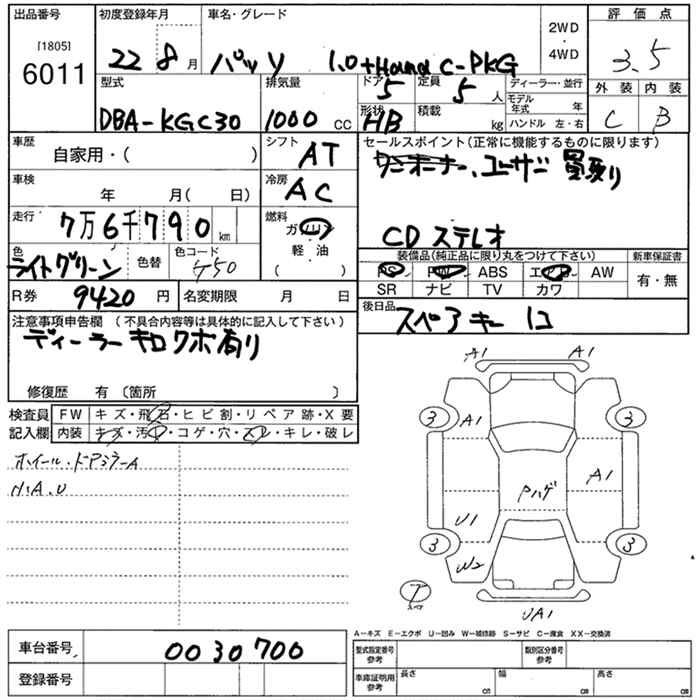 出品番号 初度登録年月 車名・グレード 2WD・4WD 評価点
[1805]
6011 22 8月 パッソ 1.0 +Hana C-PKG 3.5
型式 排気量 ドア 5 定員 5人 ディーラー・並行 外装 内装
DBA-KGC30 1000 CC 形状 HB 積載 kg モデル年式 年 C B
ハンドル 左・右
車歴 自家用・( ) シフト AT セールスポイント(正常に機能するものに限ります)
ワンオーナー、ユーザー買取り
車検 年 月( 日) 冷房 AC
走行 7万6千790km 燃料 ガソリン CDステレオ
軽・油
( )
色 ライトグリーン 色替 色コード 装備品(純正品に限り丸をつけて下さい) 新車保証書
PS PW ABS エアB AW 有・無
SR ナビ TV カワ
R券 9420円 名変期限 月 日 後日品 スペアキー 1コ
注意事項申告欄 (不具合内容等は具体的に記入して下さい)
ディーラーキロクボ有り
修復歴 有 〔箇所 〕
検査員記入欄 FW キズ・飛石・ヒビ割・リペア跡・X要
内装 キズ・汚・コゲ・穴・スレ・キレ・破レ
ホイール・ドアミラーA
N.A.U
A1 A1
3 A1 3
A1
Pハゲ
U1
3 W2 3
T スペア
UA1
A-キズ E-エクボ U-凹み W-補修跡 S-サビ C-腐食 XX-交換済
車台番号 0030700 型式指定番号 参考 類別区分番号 参考
登録番号 車庫証明用 参考 長さ cm 幅 cm 高さ cm